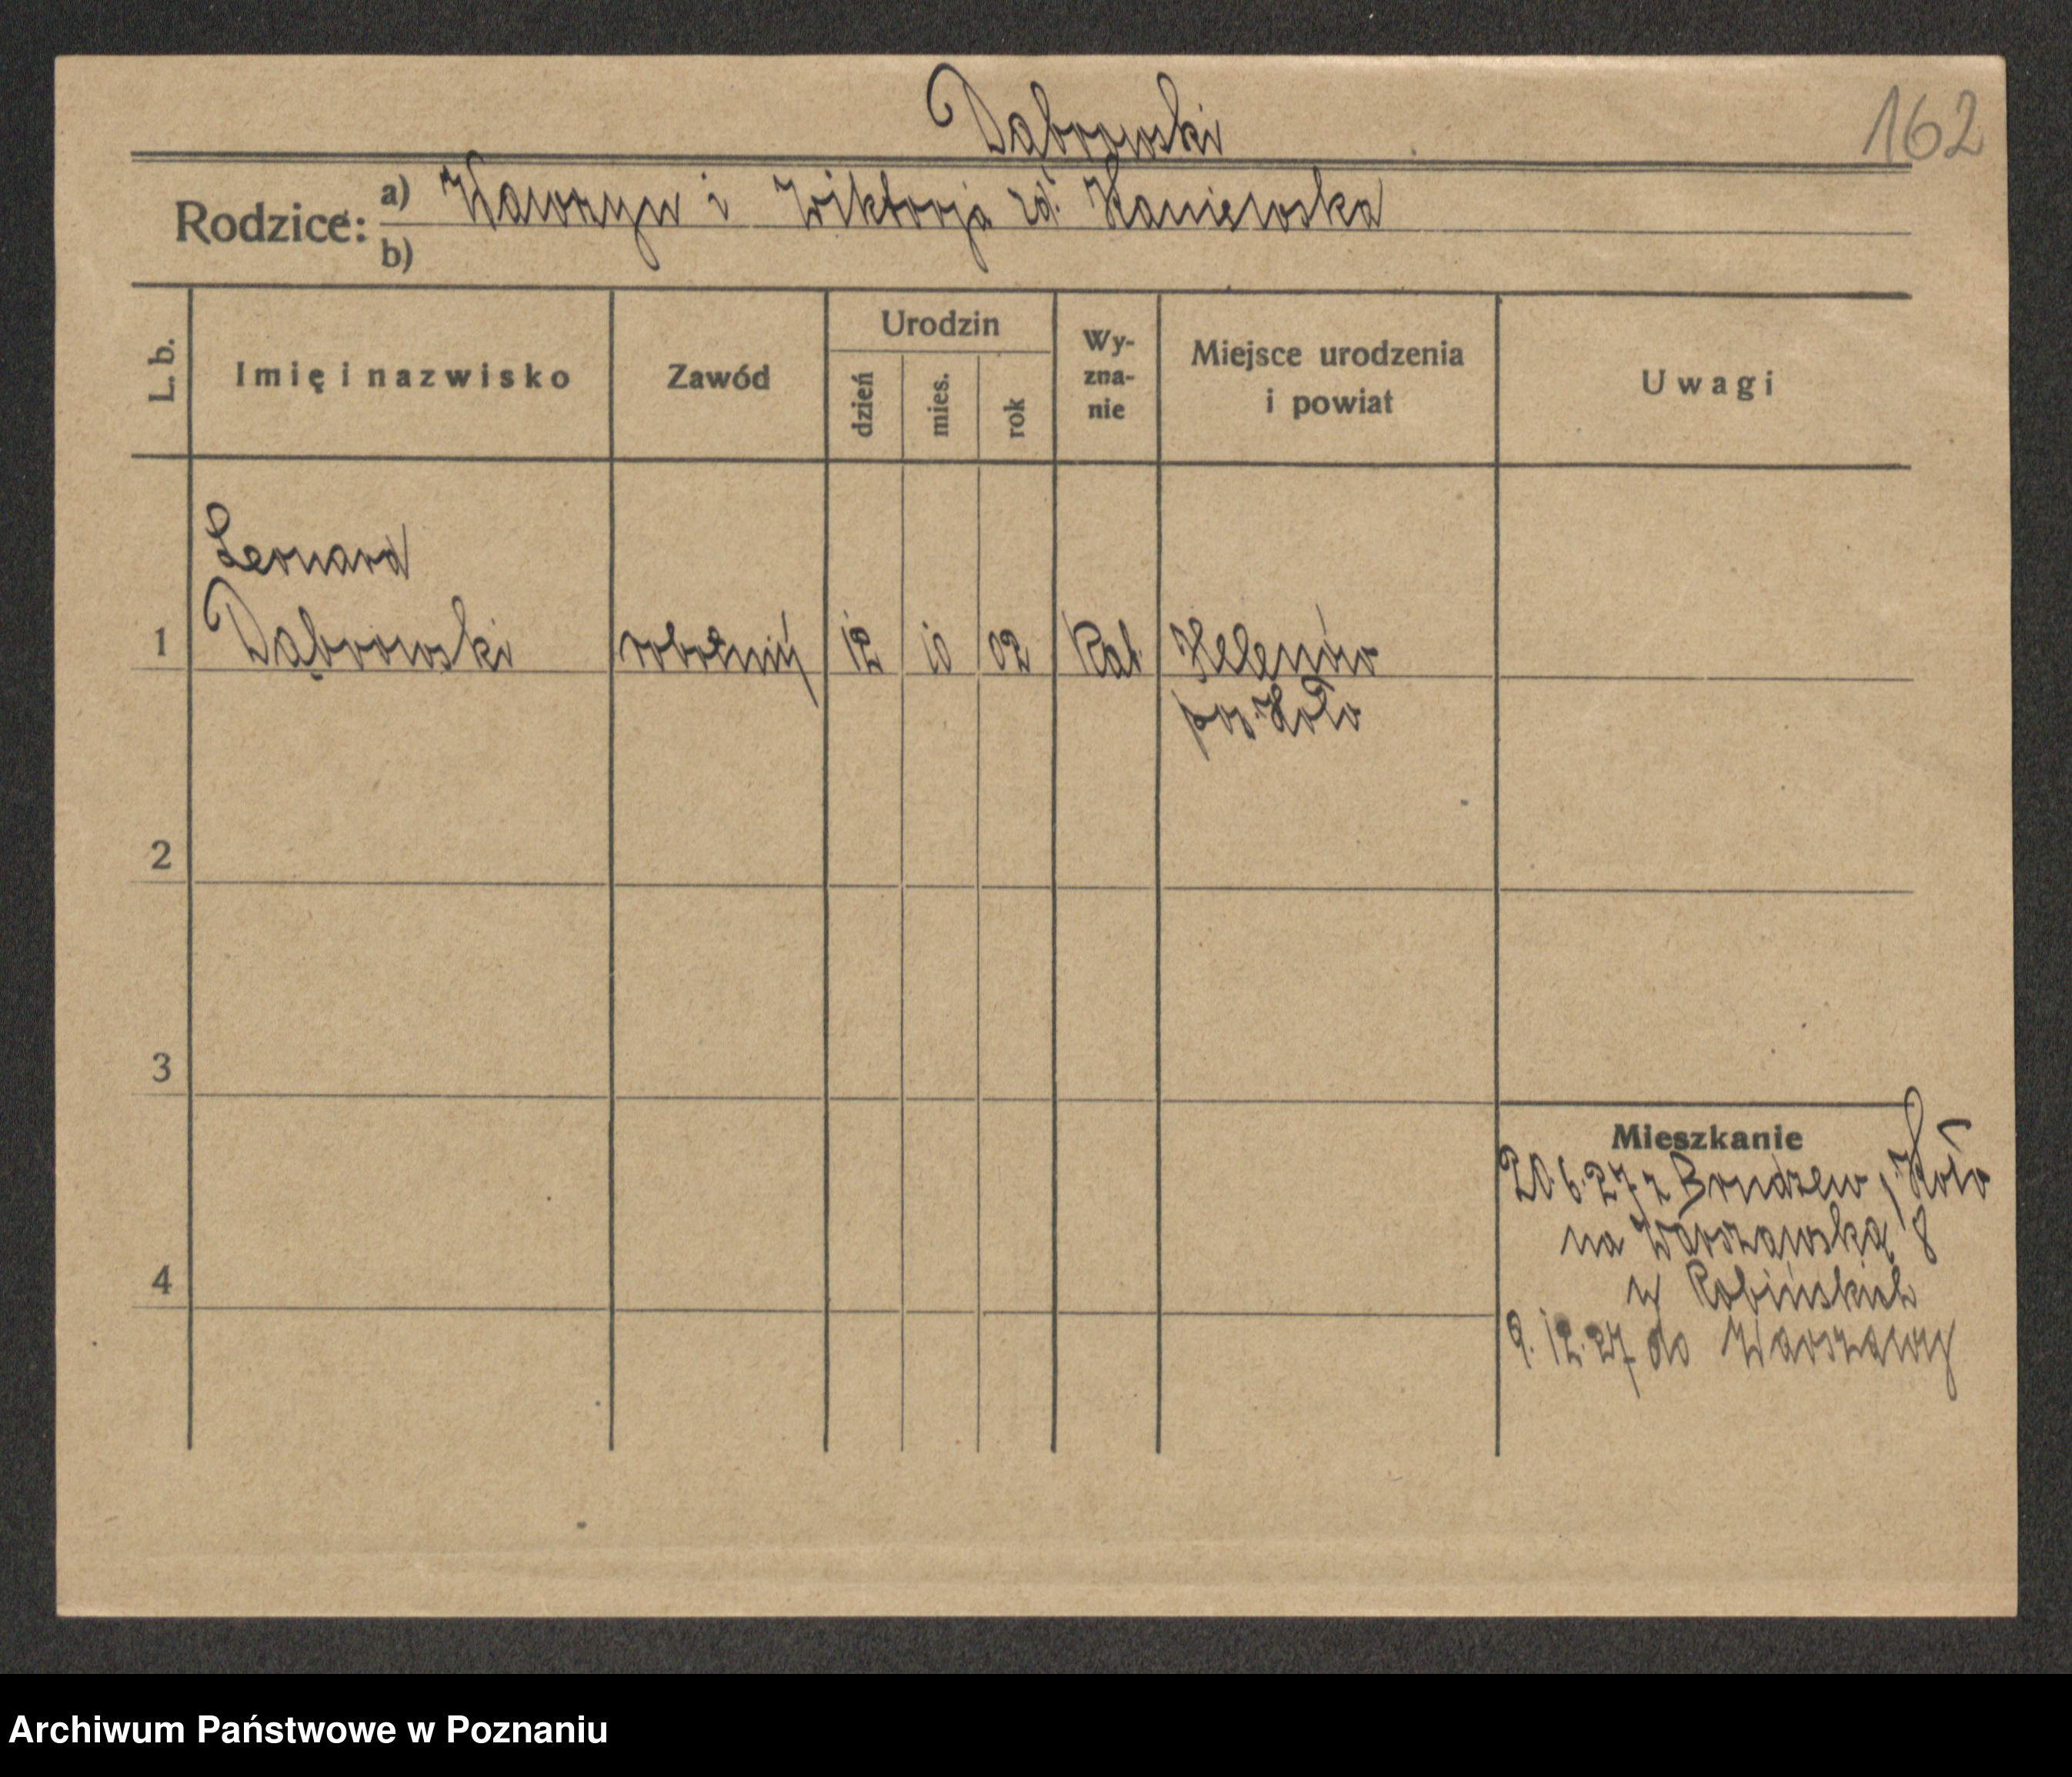 Dąbrowski
162
Rodzice: a) Wawrzyn i Wiktorja zd. Kaniewska
b)
L. b.
Imię i nazwisko
Zawód
Urodzin
dzień
mies.
rok
Wy-
zna-
nie
Miejsce urodzenia
i powiat
Uwagi
Leonard
1 Dąbrowski robotnik 12 10 02 Kat. Helenów
pow. Koło
2
3
4
Mieszkanie
20.6.27 z Brudzew, Koło
na Warszawską 8
u Robińskich
9.12.27 do Warszawy
Archiwum Państwowe w Poznaniu